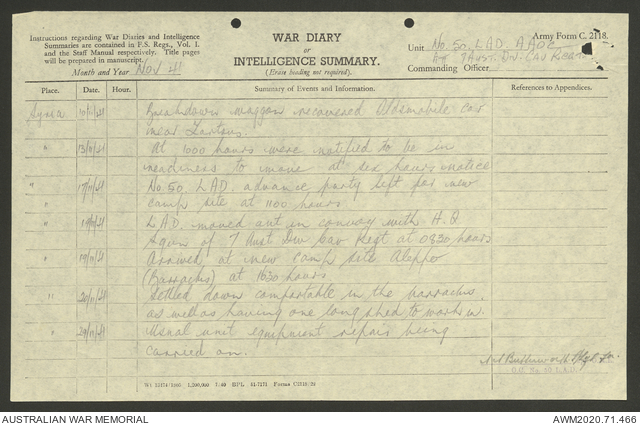 Instructions regarding War Diaries and Intelligence
Summaries are contained in F.S. Regs., Vol. I.
and the Staff Manual respectively. Title pages
will be prepared in manuscript.
Month and Year Nov 41
WAR DIARY
or
INTELLIGENCE SUMMARY.
(Erase heading not required).
Army Form C. 2118.
Unit No. 50. L.A.D. A.A.O.C
Att 7 Aust. Div Cav Regt
Commanding Officer
Place. Date. Hour. Summary of Events and Information. References to Appendices.
Syria 10/11/41 Breakdown waggon recovered Oldsmobile car
near Tartous.
" 13/11/41 At 1000 hours were notified to be in
readiness to move at six hours notice
" 17/11/41 No. 50. L.A.D. advance party left for new
camp site at 1100 hours.
" 19/11/41 L.A.D. moved out in convoy with H.Q
Sqdn of 7 Aust Div Cav Regt at 0830 hours
" 19/11/41 Arrived at new camp site Aleppo
(Barracks) at 1630 hours
" 20/11/41 Settled down comfortable in the barracks,
as well as having one long shed to work in.
" 29/11/41 Usual unit equipment repairs being
carried on.
O.C. No. 50 L.A.D.
AUSTRALIAN WAR MEMORIAL
AWM2020.71.466